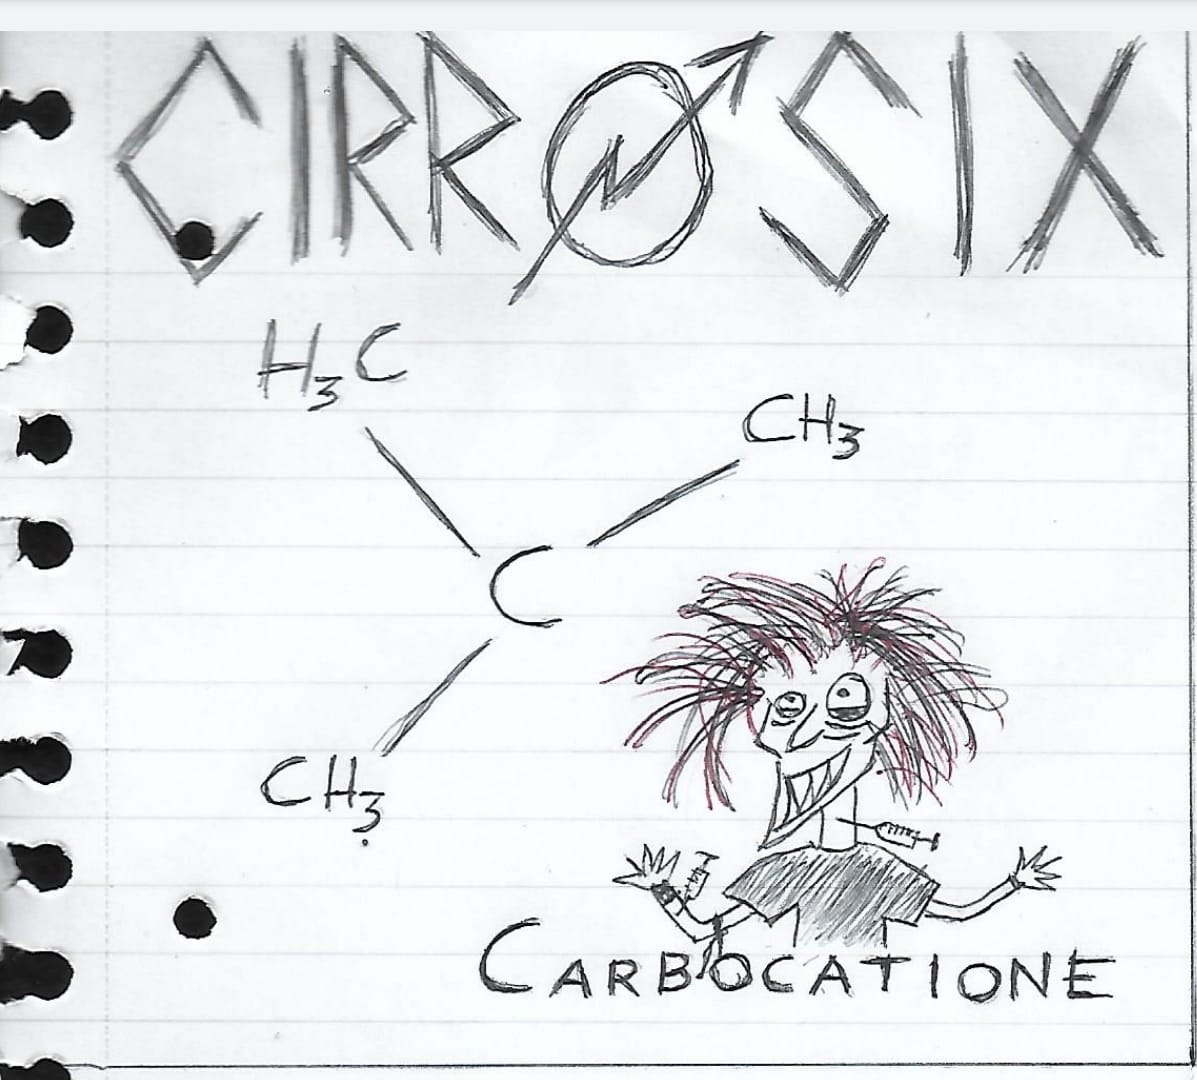 CIRROSIX
H₃C
CH₃
C
CH₃
CARBOCATIONE